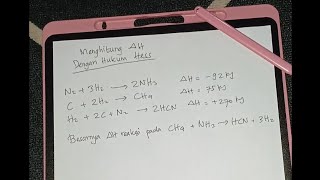 Menghitung ΔH
Dengan Hukum Hess
N₂ + 3H₂ → 2NH₃ ΔH = -92 KJ
C + 2H₂ → CH₄ ΔH = 75 KJ
H₂ + 2C + N₂ → 2HCN ΔH = +270 KJ
Besarnya ΔH reaksi pada CH₄ + NH₃ → HCN + 3H₂